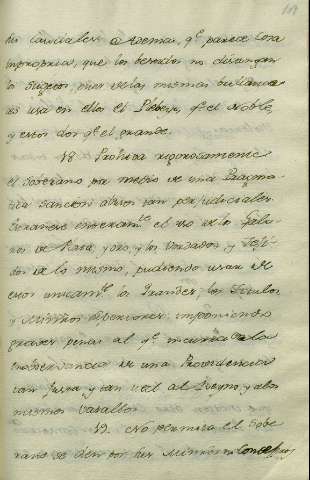 sus caudales. Ademas, qᵉ parece cosa
impropria, que los vestidos no distingan
los Sugetos, pues de las mismas brillantes
as usa en ellos el Plebeyo, qᵉ el Noble,
y estos dos qᵉ el grande.
18. Prohiva rigorosamente
el Soberano por medio de una Pragma-
tica Sancion abusos tan perjudiciales.
enteramᵗᵉ el uso de los Galo-
nes de Plata, y oro, y los Bordados y Teji-
dos de lo mismo, pudiendo usar de
estos unicamᵗᵉ los Grandes, los Titulos,
y Ministros Superiores; imponiendo
graves penas al qᵉ incurra en la
inobservancia de una Providencia
tan justa, y tan util al Reyno, y a los
mismos Vasallos.
19. No permita el Sobe-
rano se den por sus Ministros